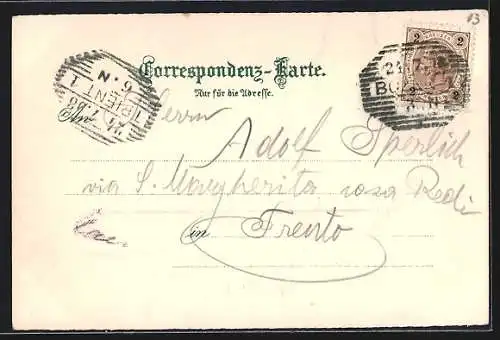 13
Correspondenz-Karte.
Nur für die Adresse.
2 2
24
BO
TRIENT 1
6. N
24 98
An
Herrn
Adolf Sperlich
via S. Margherita casa Redi
in Trento